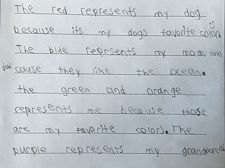 The red represents my dog
because its my dogs favorite color.
The blue reprisents my mom and
cause they like the ocean.
the green and orange
represents me because those
are my favorite colors. The
purple represents my grandparents